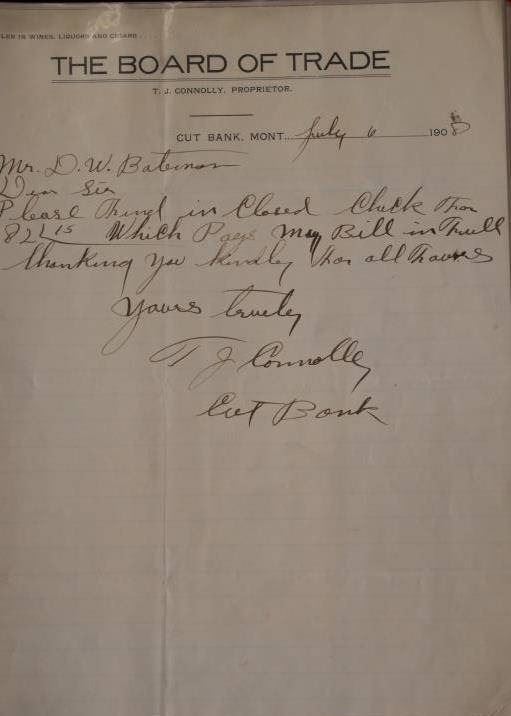 LER IN WINES, LIQUORS AND CIGARS....
THE BOARD OF TRADE
T. J. CONNOLLY, PROPRIETOR.
CUT BANK, MONT... July 6 1908
Mr. D. W. Bateman
Dear Sir
Please Find in Closed Check For
82 15 Which Pays May Bill in Full
thanking you kindley For all Favors
Yours truley
T J Connolly
Cut Bank